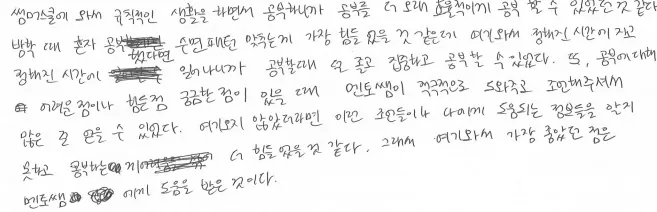 썸머스쿨에 와서 규칙적인 생활을 하면서 공부하니까 공부를 더 오래 효율적이게 공부 할 수 있었던 것 같다
방학 때 혼자 공부했다면 수면패턴 맞추는게 가장 힘들었을 것 같은데 여기와서 정해진 시간에 자고
정해진 시간에 일어나니까 공부할때 더 졸고 집중하고 공부할 수 있었다. 또, 공부에 대해
어려운 점이나 힘든점 궁금한 점이 있을 때 멘토쌤이 적극적으로 도와주고 조언해주셔서
많은 걸 얻을 수 있었다. 여기오지 않았더라면 이런 조언들이나 나에게 도움되는 정보들을 알지
못하고 공부하는게 더 힘들었을 것 같다. 그래서 여기와서 가장 좋았던 점은
멘토쌤에게 도움을 받은 것이다.